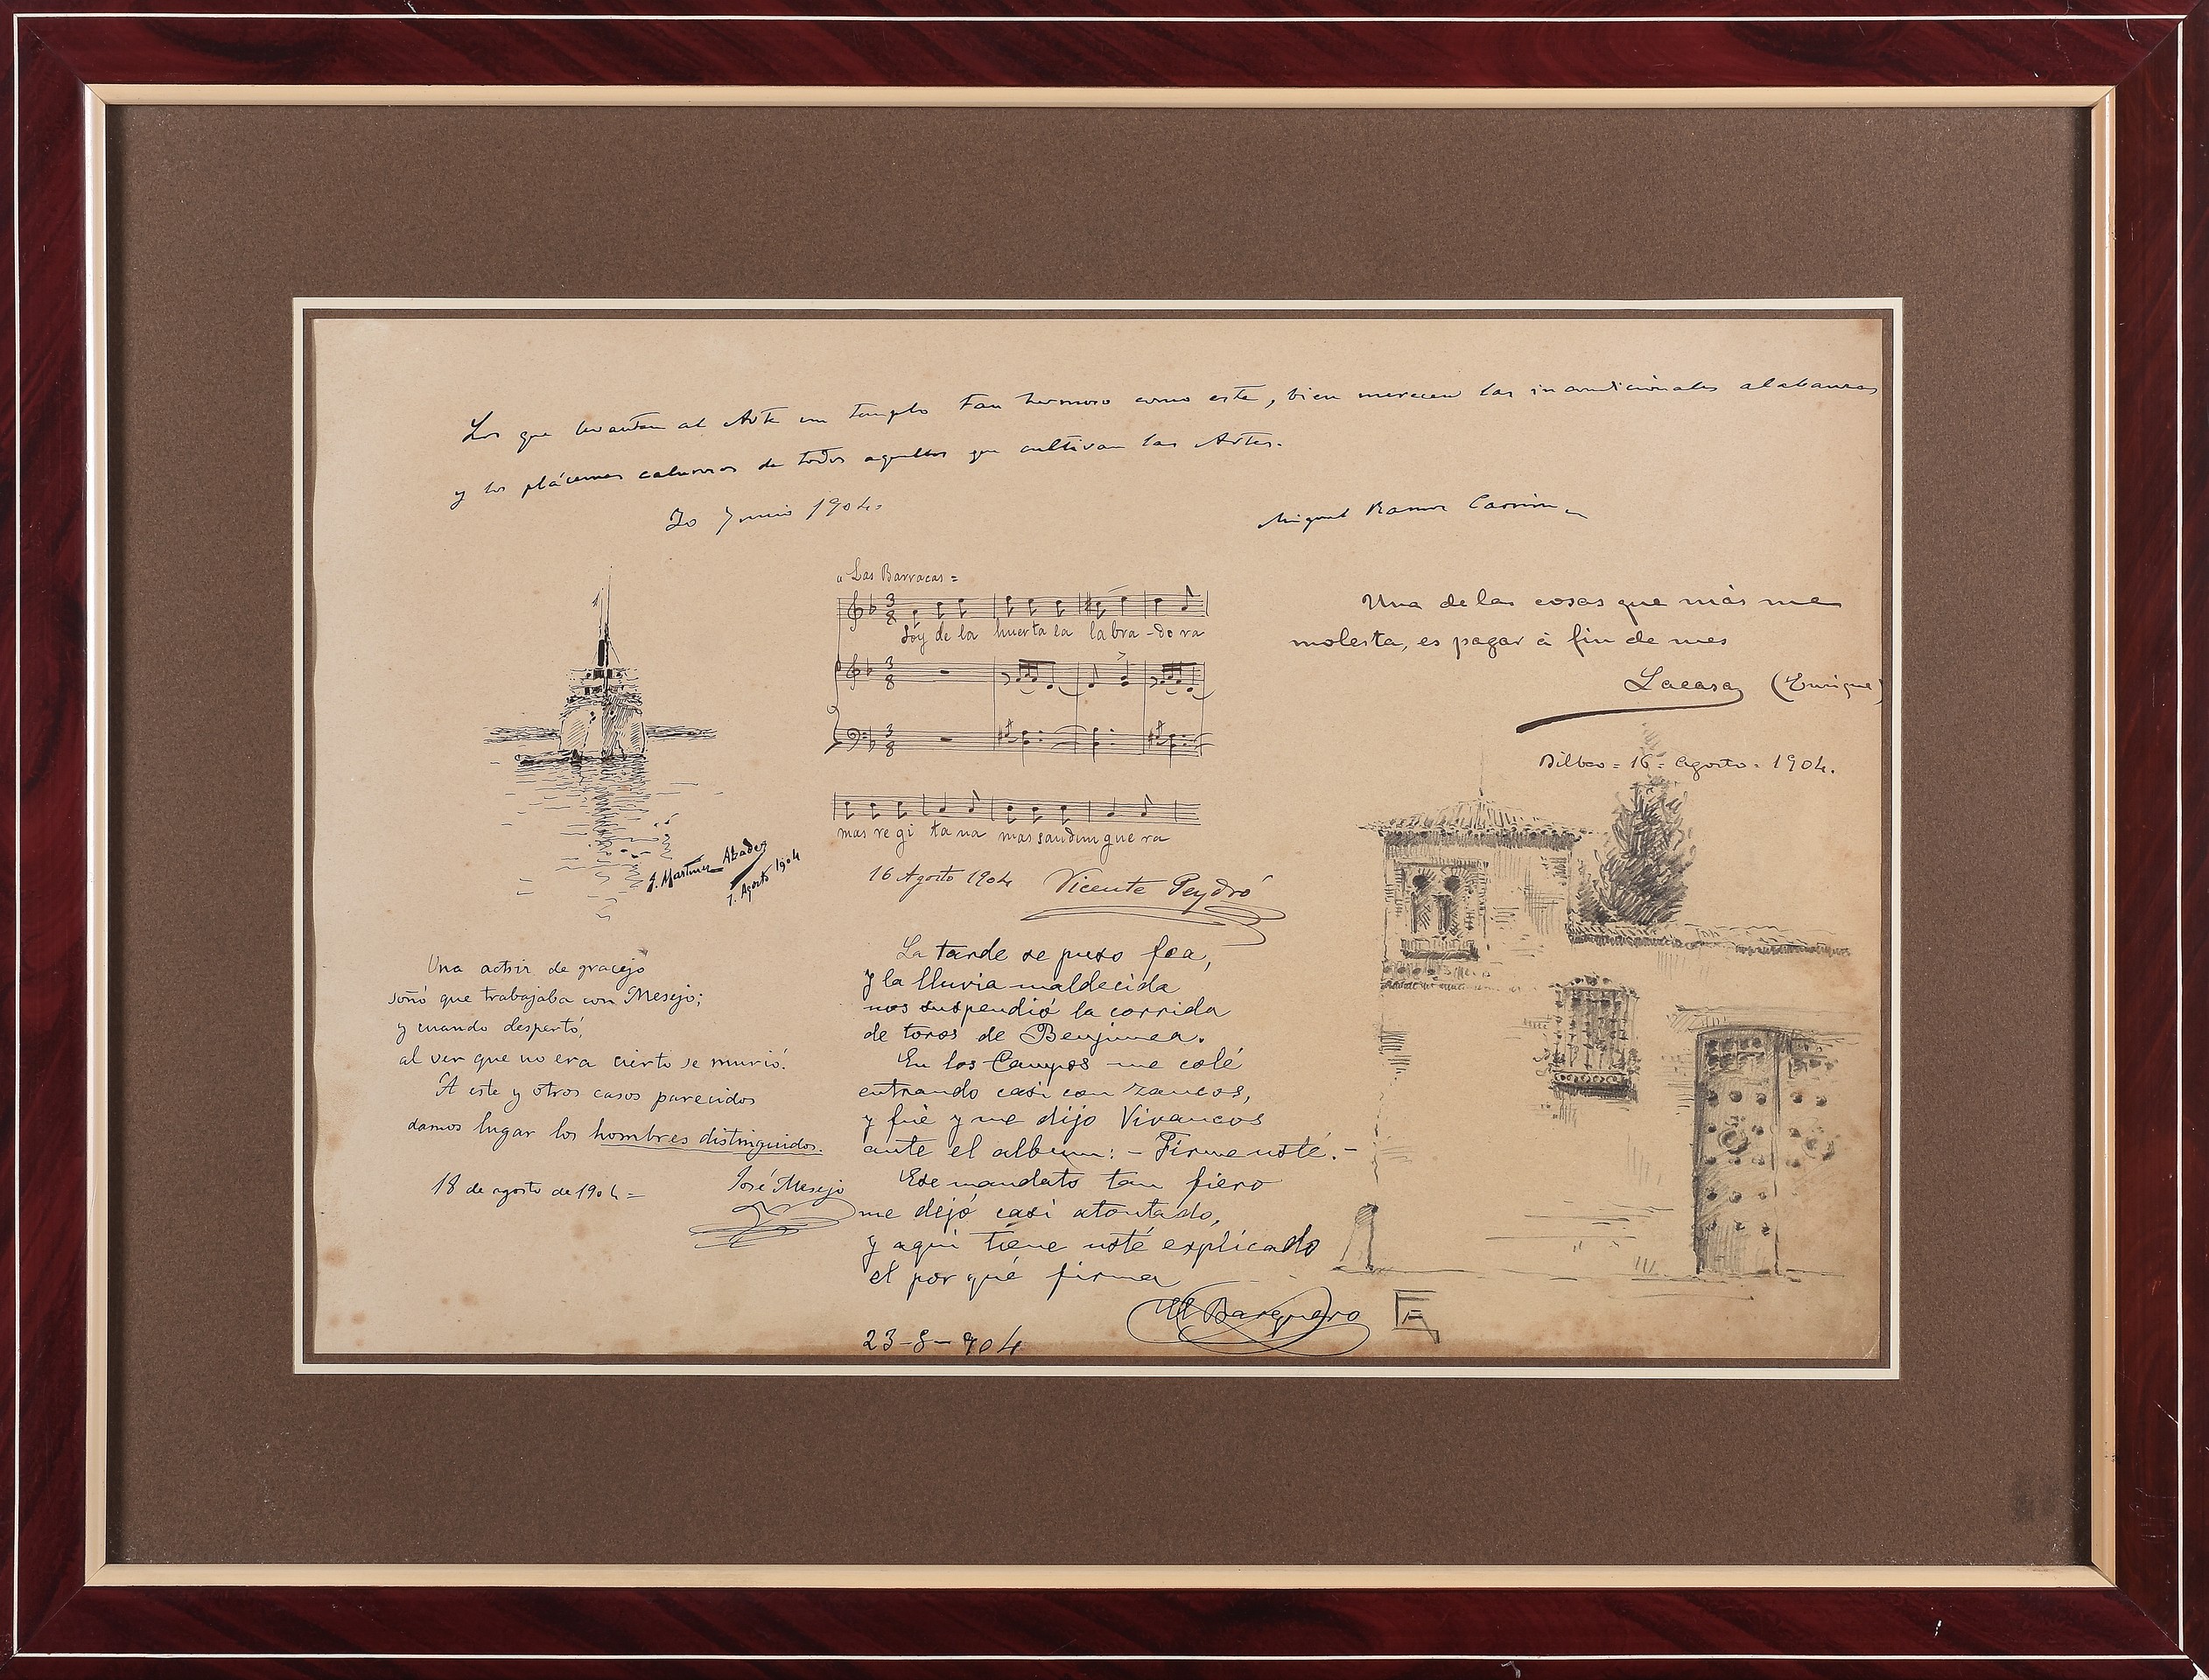 Los que levantan al Arte un templo tan hermoso como este, bien merecen las incondicionales alabanzas
y los plácemes calurosos de todos aquellos que cultivan las Artes.
30 Junio 1904.
Miguel Ramos Carrión
"Las Barracas =
Soy de la huerta la labra-do ra
mas re gi ta na mas sandun gue ra
16 Agosto 1904 Vicente Peydró
J. Martínez Abades
7. Agosto 1904
Una de las cosas que más me
molesta, es pagar á fin de mes
Lacasa (Enrique)
Bilbao = 16 = Agosto = 1904.
Una actriz de gracejo
soñó que trabajaba con Mesejo;
y cuando despertó,
al ver que no era cierto se murió.
A este y otros casos parecidos
damos lugar los hombres distinguidos.
18 de agosto de 1904 =
José Mesejo
La tarde se puso fea,
y la lluvia maldecida
nos suspendió la corrida
de toros de Benjumea.
En los Campos me colé
entrando casi con zancos,
y fué y me dijo Vivancos
ante el album: - Firme usté. -
Ese mandato tan fiero
me dejó casi atontado,
y aquí tiene usté explicado
el por qué firma
El Barquero
23-8-904